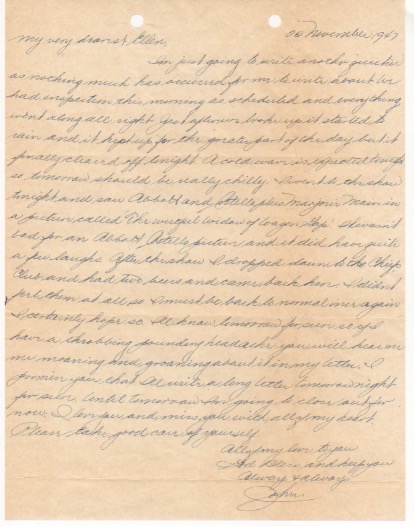 My very dearest Ellen,
November 1947
Im just going to write another quickie
as nothing much has occurred for me to write about. We
had inspection this morning as scheduled and everything
went along all right. Just after we broke up it started to
rain and it kept up for the greater part of the day but it
finally cleared off tonight. A cold wave is expected tonight
so tomorrow should be really chilly. I went to the show
tonight and saw Abbott and Costello plus Marjorie Main in
a picture called "The wistful widow of Wagon Gap". It wasn't
bad for an Abbott Costello picture and it did have quite
a few laughs. After the show I dropped down to the
Club and had two beers and came back here. I didn't
feel them at all so I must be back to normal once again
I certainly hope so. I'll know tomorrow for sure so if I
have a throbbing pounding headache you will hear me
moaning and groaning about it in my letter. I
promise you that I'll write a long letter tomorrow night
for sure. Until tomorrow Im going to close out for
now. I love you and miss you with all of my heart.
Please take good care of yourself.
All of my love to you
God bless and keep you
Always & always
John